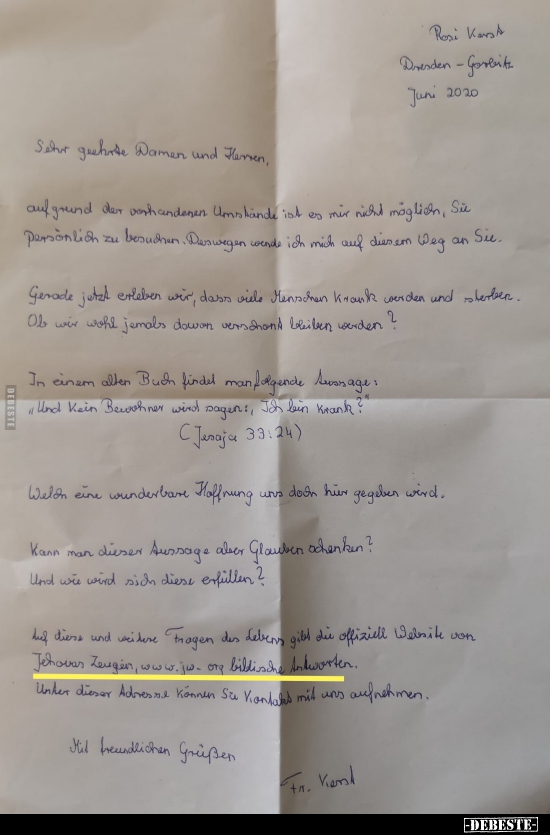 Rosi Karst
Dresden - Gorbitz
Juni 2020
Sehr geehrte Damen und Herren,
aufgrund der vorhandenen Umstände ist es mir nicht möglich, Sie
persönlich zu besuchen. Deswegen wende ich mich auf diesem Weg an Sie.
Gerade jetzt erleben wir, dass viele Menschen krank werden und sterben.
Ob wir wohl jemals davon verschont bleiben werden?
In einem alten Buch findet man folgende Aussage:
„Und kein Bewohner wird sagen:, Ich bin krank?"
(Jesaja 33:24)
Welch eine wunderbare Hoffnung uns doch hier gegeben wird.
Kann man dieser Aussage aber Glauben schenken?
Und wie wird sich diese erfüllen?
Auf diese und weitere Fragen des Lebens gibt die offiziell Website von
Jehovas Zeugen, www.jw-org biblische Antworten.
Unter dieser Adresse können Sie Kontakt mit uns aufnehmen.
Mit freundlichen Grüßen
Fr. Karst
DEBESTE
-DEBESTE-